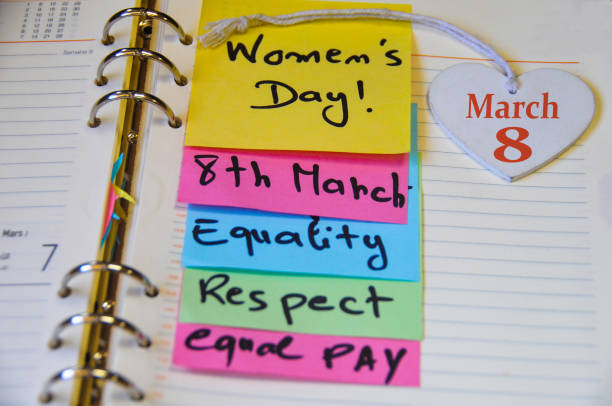 Semaine 9
Women's
Day!
March
8
8th March
Equality
Mars
7
Respect
equal PAY